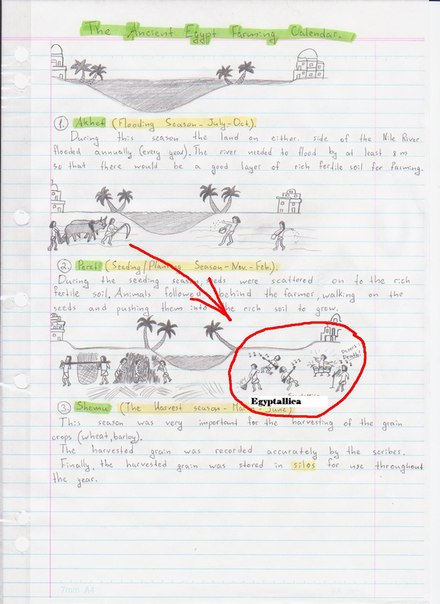 The Ancient Egypt Farming Calendar.
1. Akhet (Flooding Season - July-Oct).
During this season the land on either side of the Nile River
flooded annually (every year). The river needed to flood by at least 8 m
so that there would be a good layer of rich fertile soil for farming.
2. Peret (Seeding/Planting Season - Nov.-Feb.).
During the seeding season, seeds were scattered on to the rich
fertile soil. Animals followed behind the farmer, walking on the
seeds and pushing them into the rich soil to grow.
Death!
Egyptallica
3. Shemu (The Harvest season - March - June)
This season was very important for the harvesting of the grain
crops (wheat, barley).
The harvested grain was recorded accurately by the scribes.
Finally, the harvested grain was stored in silos for use throughout
the year.